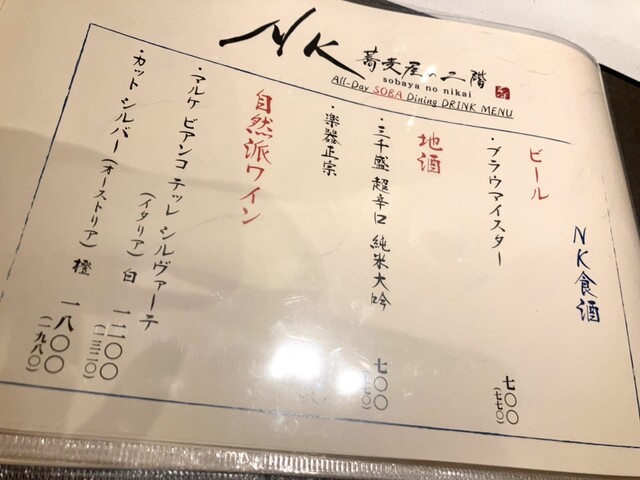 NK 蕎麦屋の二階
sobaya no nikai
All-Day SOBA Dining DRINK MENU
NK食酒
ビール
・ブラウマイスター 七〇〇
(七七〇)
地酒
・三千盛 超辛口 純米大吟 七〇〇
(七七〇)
・楽器正宗
自然派ワイン
・マルケ ビアンコ テッレ シルヴァーテ
(イタリア) 白 一二〇〇
(一三二〇)
・カット シルバー (オーストリア) 橙 一八〇〇
(一九八〇)